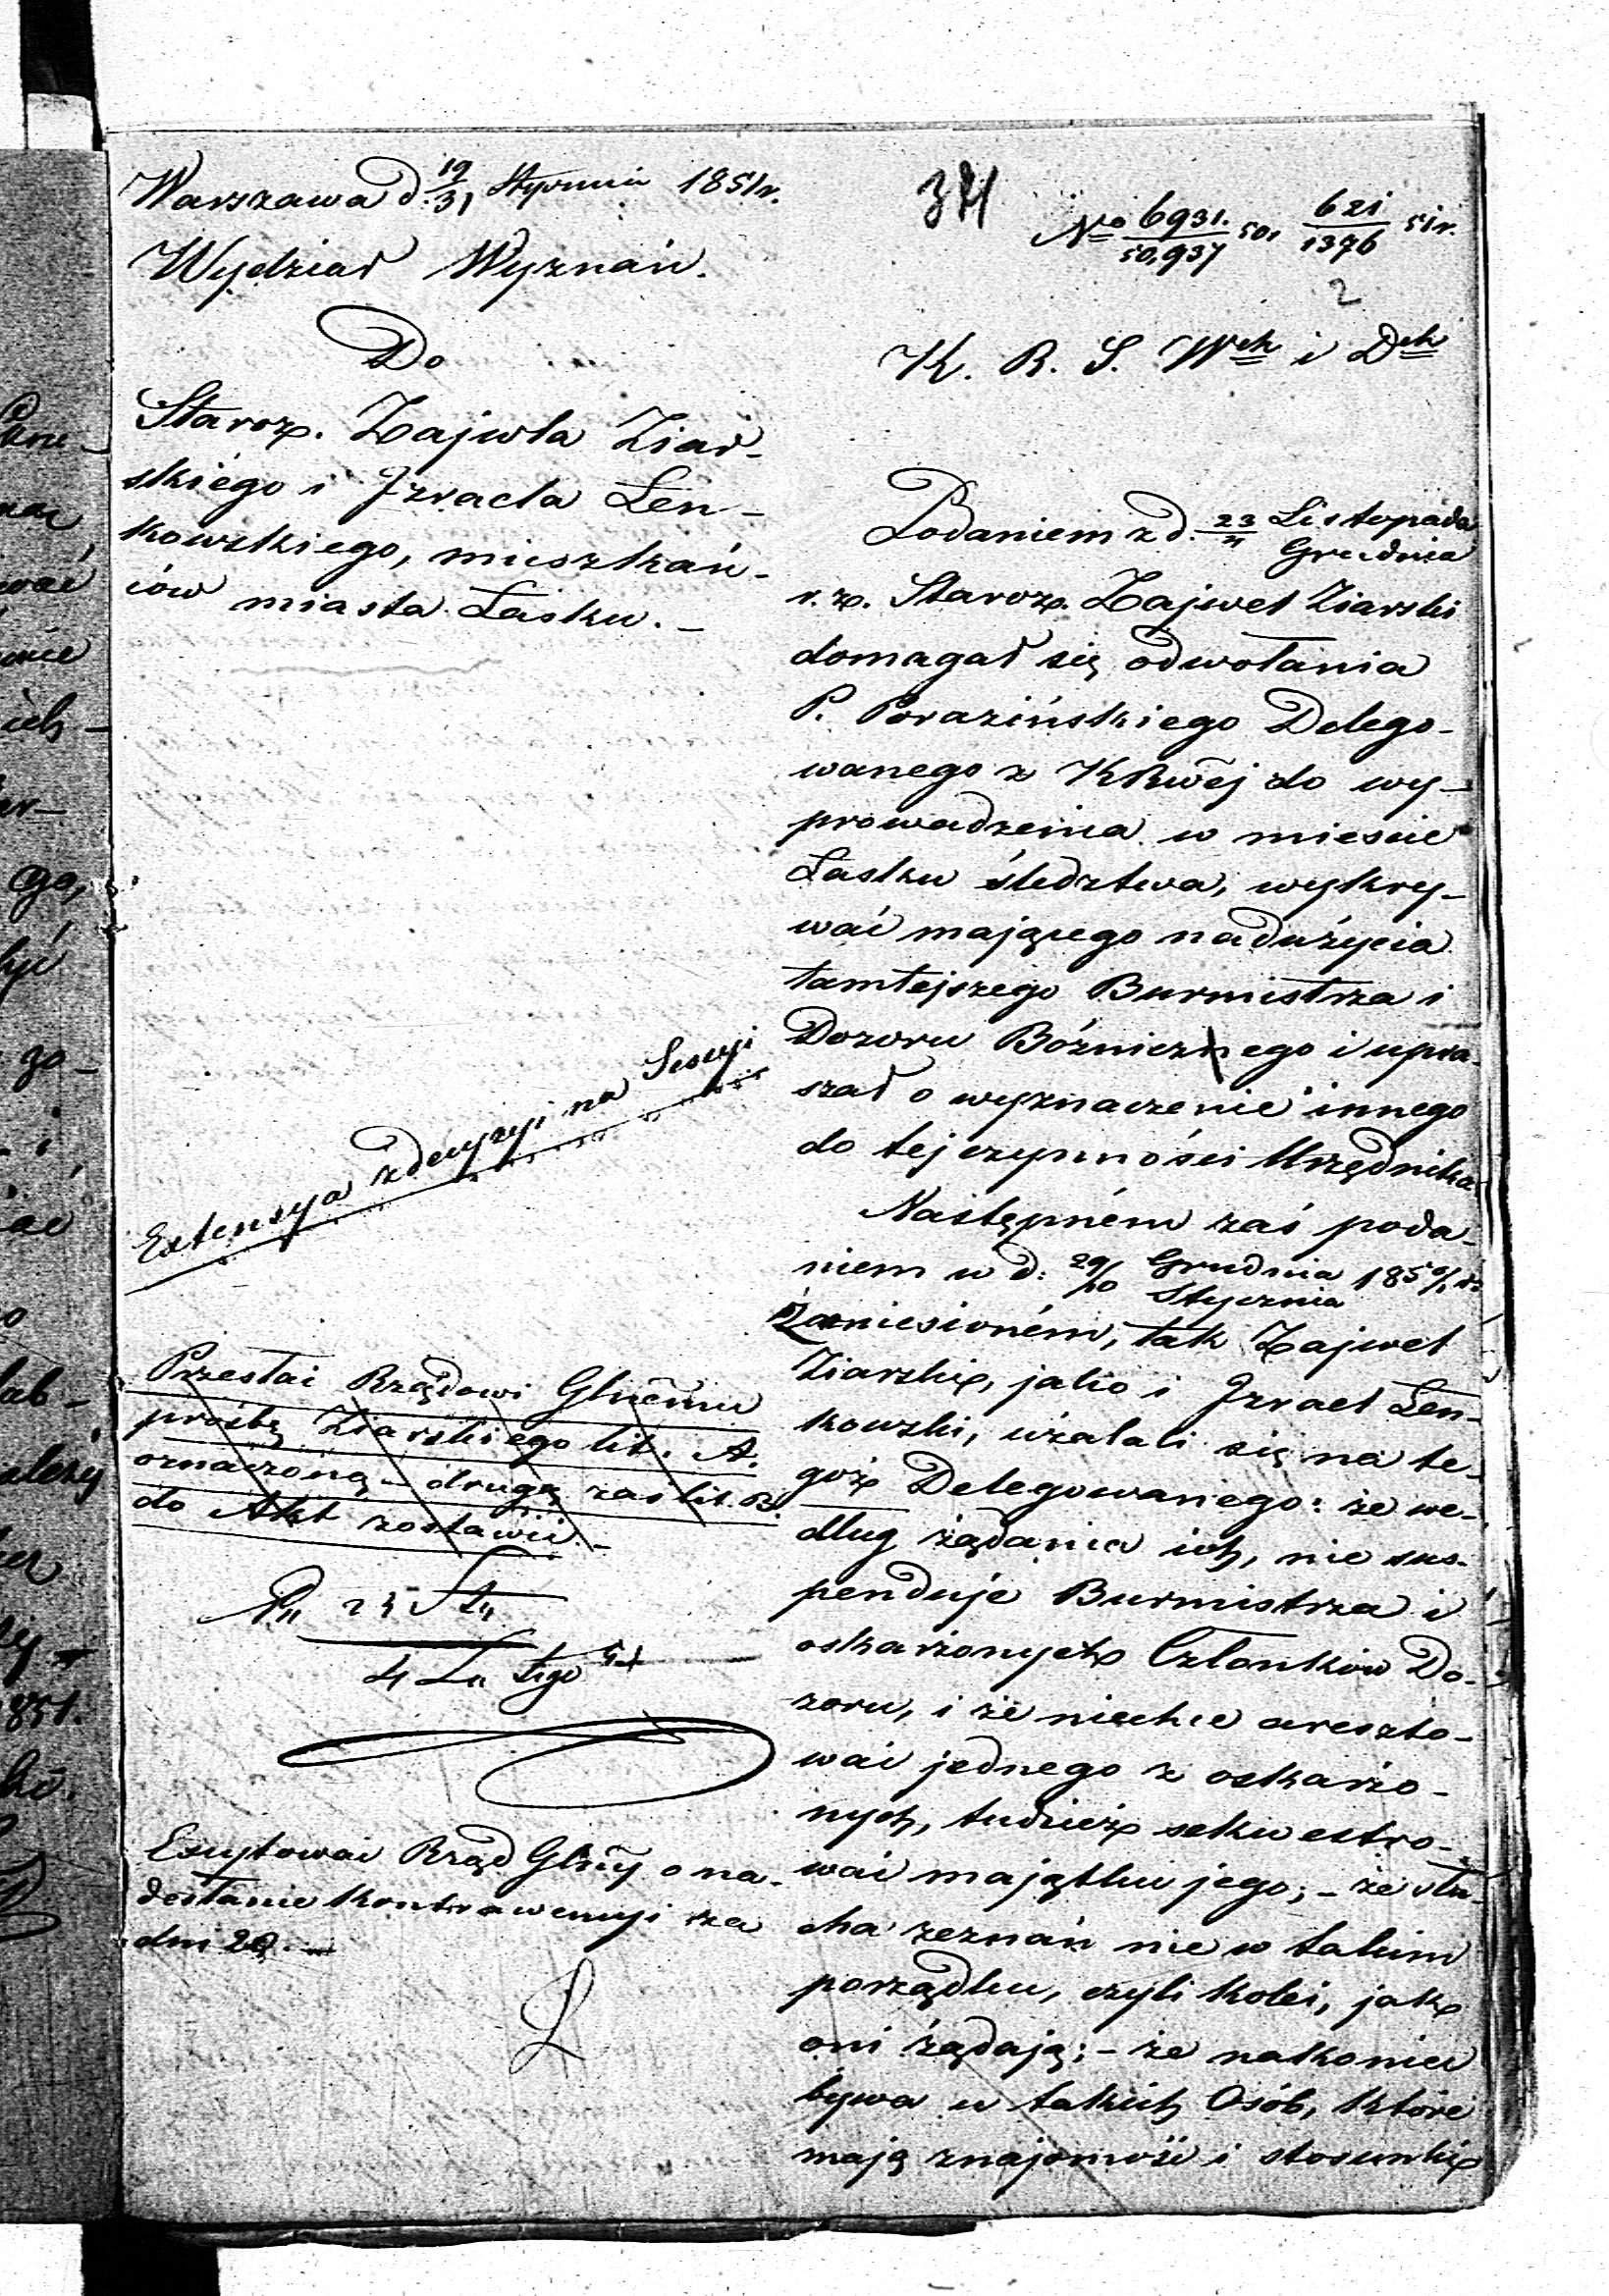 Warszawa d. 19/31 Stycznia 1851 r.
Wydział Wyznań.
Do
Staroz. Zajwla Ziar-
skiego i Izraela Len-
kowskiego, mieszkań-
ców miasta Łasku. –
Extensya z decyzyi na Sessyi
Przesłać Rządowi Głnemu
prośbę Ziarskiego lit. A.
oznaczoną – drugą zaś lit. B.
do Akt zostawić. –
4 Lutego
Excytować Rząd Głny o na-
desłanie kontrawencyi za
dni 20. –
34
No 6931./50,937 50, 621/1376 51 r.
2
K. R. S. Wch i Dch
Podaniem z d. 23 Listopada/11 Grudnia
r. z. Staroz. Zajwel Ziarski
domagał się odwołania
P. Porazińskiego Delego-
wanego z KRwej do wy-
prowadzenia w mieście
Łasku śledztwa, wykry-
wać mającego nadużycia
tamtejszego Burmistrza i
Dozoru Bóżniczego i upra-
szał o wyznaczenie innego
do tej czynności Urzędnika
Następném zaś poda-
niem w d: 29/10 Grudnia/Stycznia 1850/1 r.
Zaniesioném, tak Zajwel
Ziarski, jako i Izrael Len-
kowski, użalali się na te-
goż Delegowanego: że we-
dług żądania ich, nie sus-
penduje Burmistrza i
oskarżonych Członków Do-
zoru, i że niechce areszto-
wać jednego z oskarżo-
nych, tudzież sekwestro-
wać majątku jego; – że słu-
cha zeznań nie w takim
porządku, czyli kolei, jak
oni żądają; – że nakoniec
bywa u takich Osób, które
mają znajomość i stosunki